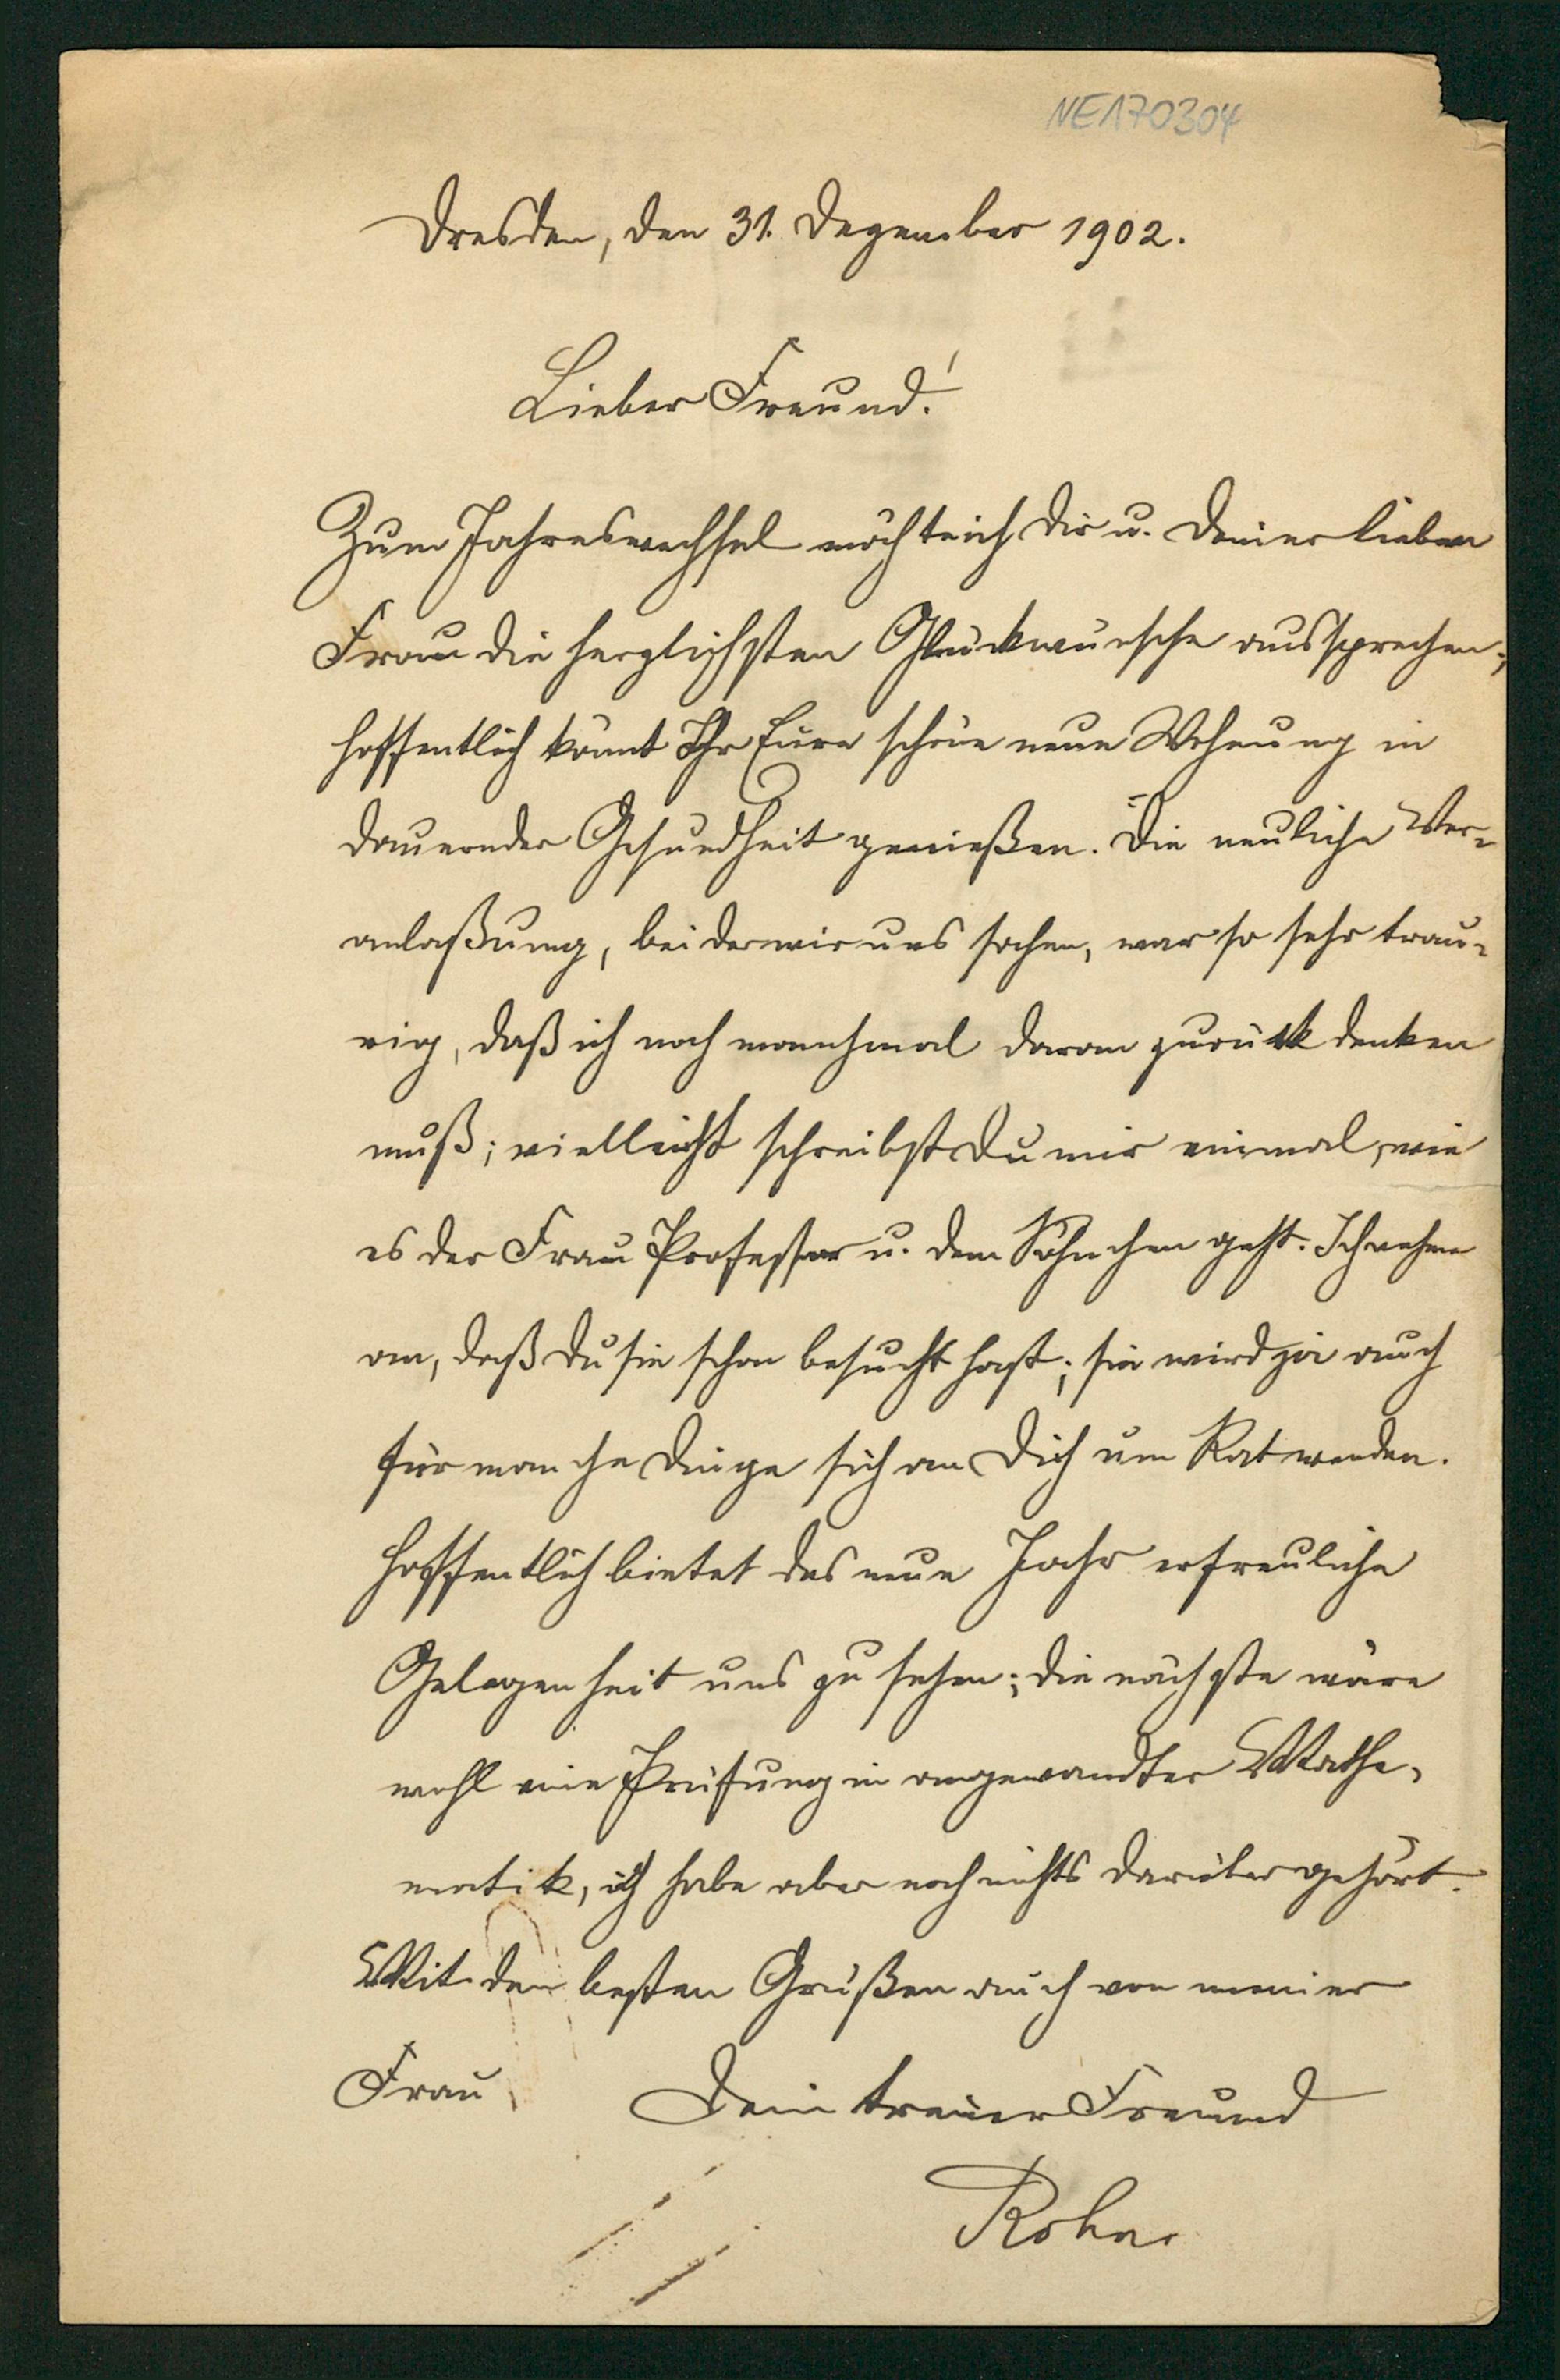 NE170304
Dresden, den 31. Dezember 1902.
Lieber Freund!
Zum Jahreswechsel möchte ich Dir u. Deiner lieben
Frau die herzlichsten Glückwünsche aussprechen;
hoffentlich könnt Ihr Eure schöne neue Wohnung in
dauernder Gesundheit genießen. Die neuliche Ver-
anlaßung, bei der wir uns sahen, war so sehr trau-
rig, daß ich noch manchmal daran zurück denken
muß; vielleicht schreibst Du mir einmal, wie
es der Frau Professor u. dem Söhnchen geht. Ich nehme
an, daß Du sie schon besucht hast; sie wird ja auch
für manche Dinge sich an Dich um Rat wenden.
Hoffentlich bietet das neue Jahr erfreuliche
Gelegenheit uns zu sehen; die nächste wäre
wohl eine Prüfung in angewandter Mathe-
matik, ich habe aber noch nichts darüber gehört.
Mit den besten Grüßen auch von meiner
Frau Dein treuer Freund
Rohn